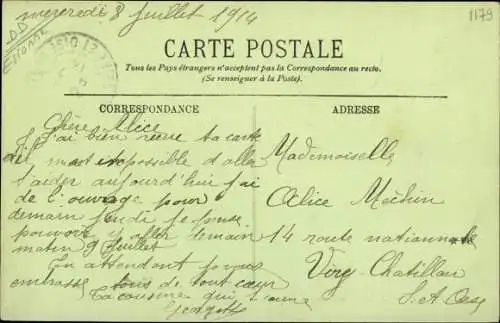 mercredi 8 Juillet 1914
1179
DD
Essonne
CARTE POSTALE
Tous les Pays étrangers n'acceptent pas la Correspondance au recto.
(Se renseigner à la Poste).
CORRESPONDANCE
ADRESSE
Chère Alice
J'ai bien reçue ta carte
il m'est impossible d'aller
t'aider aujourd'hui j'ai
de l'ouvrage pour
demain jeudi je pense
pouvoir y aller demain
matin 9 Juillet
En attendant je vous
embrasse tous de tout cœur
Ta cousine qui t'aime
Mademoiselle
Alice Méchin
14 route nationale
Viry-Chatillon
S. et Oise